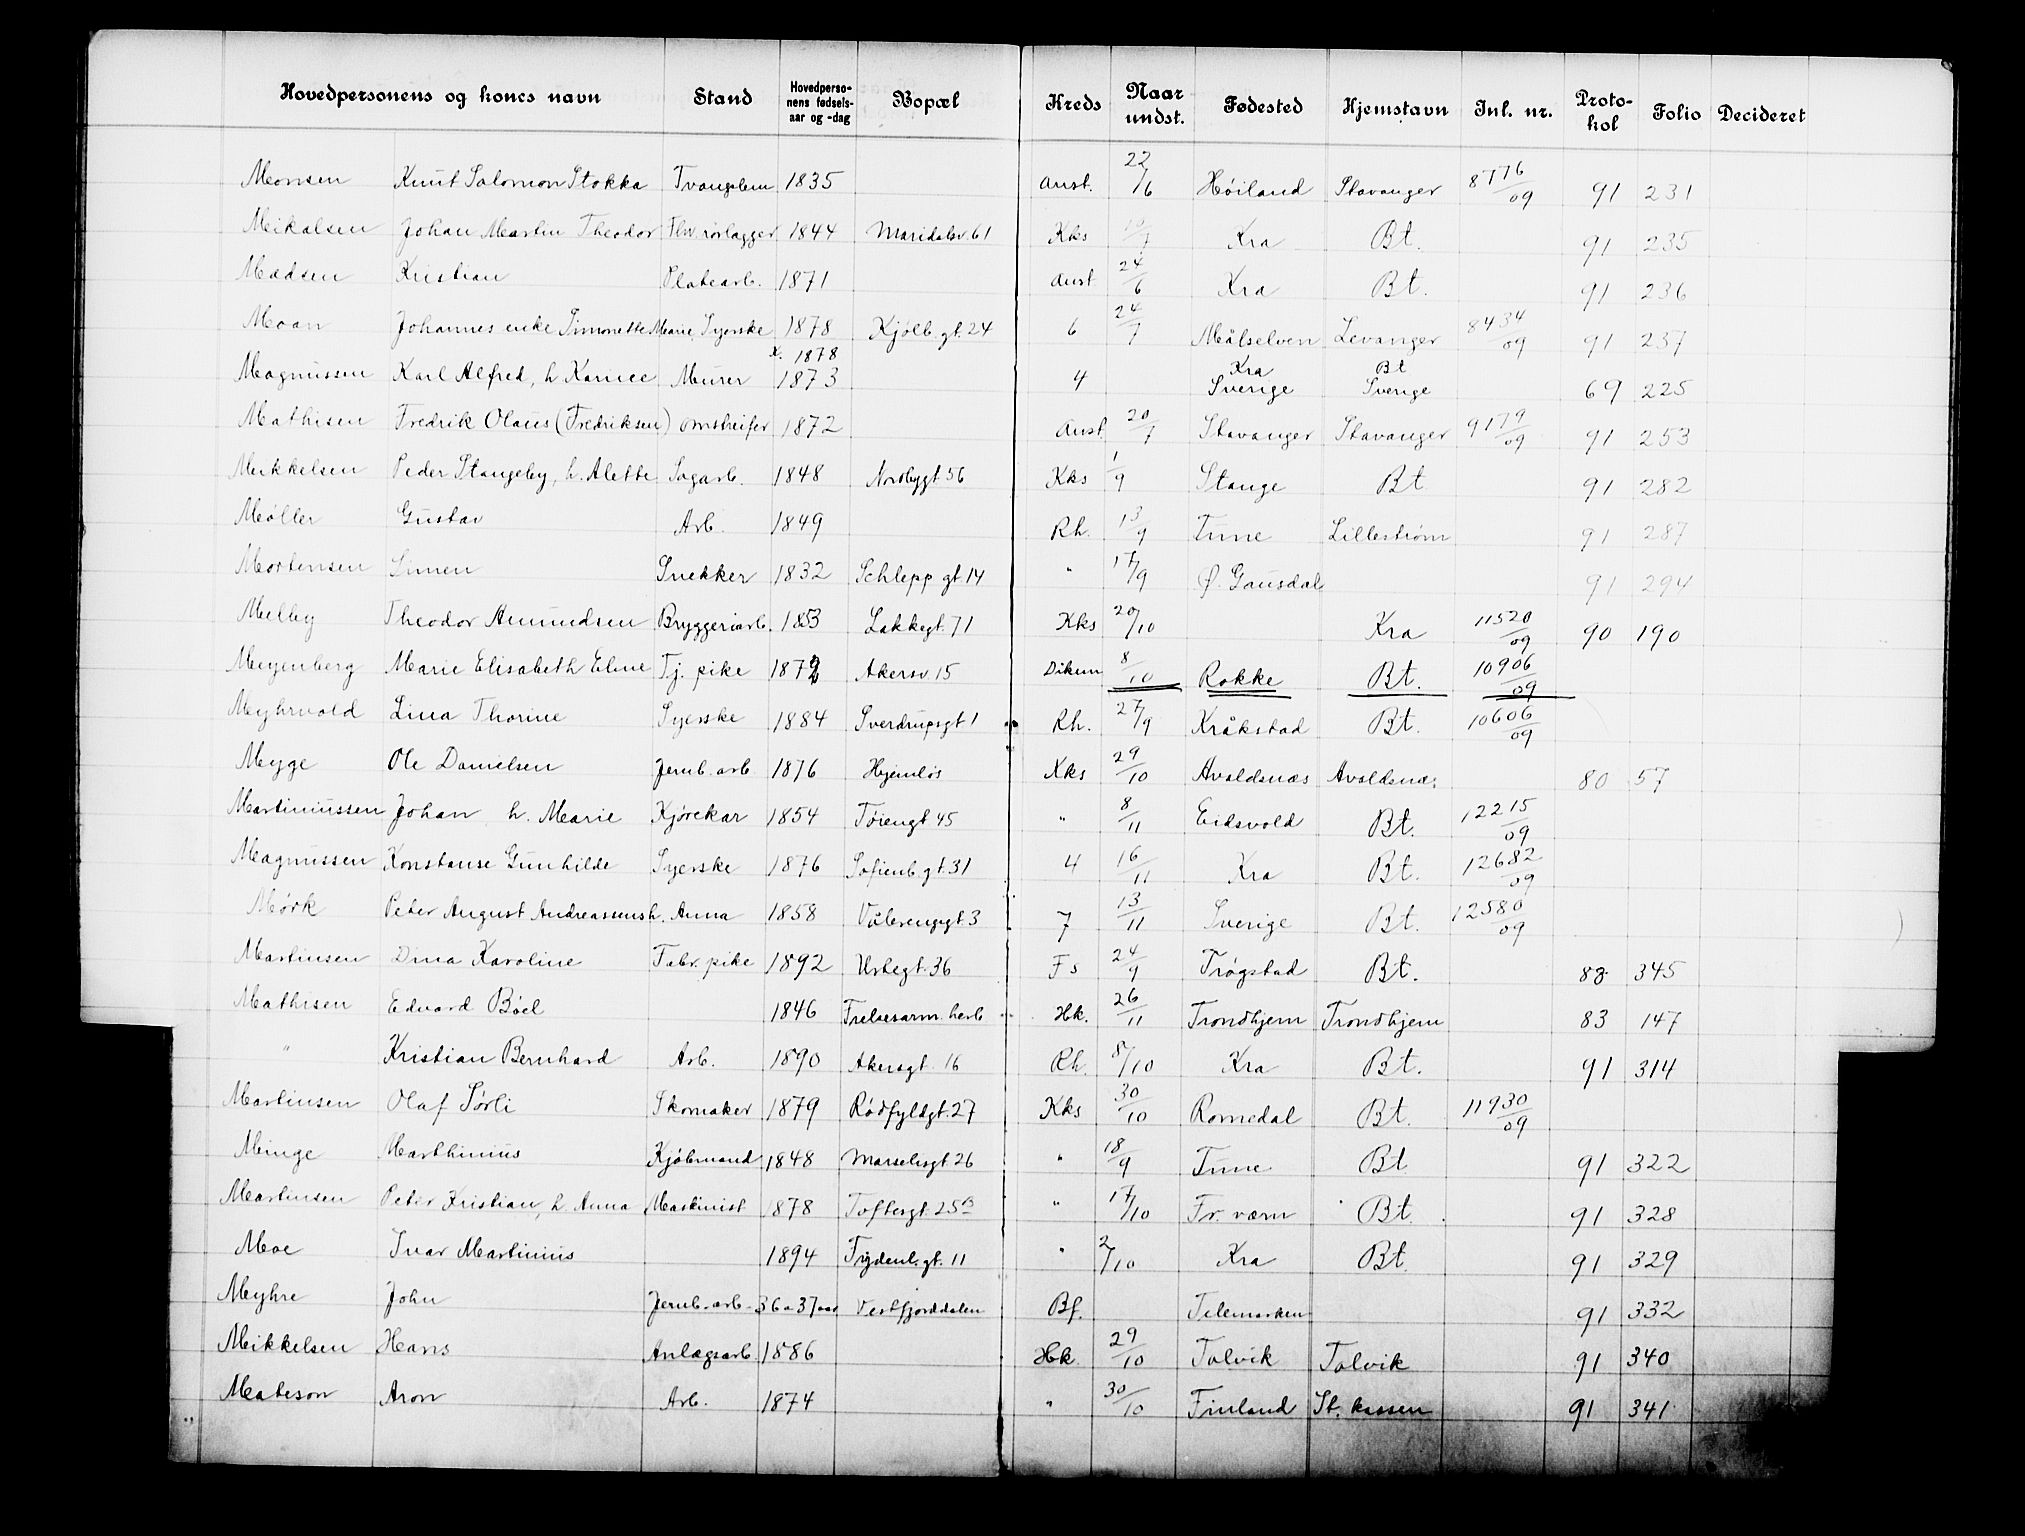 Hovedpersonens og kones navn Stand Hovedpersonens fødselsaar og -dag Bopæl Kreds Naar undst. Fødested Hjemstavn Inl. nr. Protokol Folio Decideret
Monsen Knut Salomon Stokka Tvangslem 1835 Anst. 22/6 Høiland Stavanger 8776/09 91 231
Mikalsen Johan Martin Theodor Fhv. rørlægger 1844 Maridalsv. 61 Kks 10/7 Kra Bt. 91 235
Madsen Kristian Platearb. 1871 Anst 24/6 Kra Bt. 91 236
Moan Johannes enke Simonette Marie, Syerske 1878 Kjølb. gt. 24 6 24/7 Målselven Levanger 8434/09 91 237
Magnussen Karl Alfred, h Karine Murer 1873 k. 1878 4 Sverige Kra Sverige Bt 69 225
Mathisen Fredrik Olaus (Fredriksen) omstreifer 1872 Anst 20/7 Stavanger Stavanger 9179/09 91 253
Mikkelsen Peder Stangeby, h. Alette Sagarb. 1848 Nordbygt 56 Kks 1/9 Stange Bt 91 282
Møller Gustav Arb. 1849 Rh. 13/9 Tune Lillestrøm 91 287
Mortensen Simen Snekker 1832 Schlepp. gt. 14 " 17/9 Ø. Gausdal 91 294
Melby Theodor Amundsen Bryggeriarb. 1853 Lakkegt. 71 Kks 20/10 Kra 11520/09 90 190
Meyenberg Marie Elisabeth Eline Tj. pike 1872 Akersv. 15 Dikem 8/10 Rokke Bt. 10906/09
Myhrvold Lina Thorine Syerske 1884 Sverdrupsgt 1 Rh. 27/9 Kråkstad Bt. 10606/09
Myge Ole Danielsen Jernb. arb 1876 Hjemløs Kks 29/10 Avaldsnæs Avaldsnæs 80 57
Martiniussen Johan h. Marie Kjørekar 1854 Tøiengt 45 " 8/11 Eidsvold Bt. 12215/09
Magnussen Konstanse Gunhilde Syerske 1876 Sofienb. gt. 31 4 16/11 Kra Bt. 12682/09
Mørk Peter August Andreassens h. Anna 1858 Vålerenggt. 3 7 13/11 Sverige Bt. 12580/09
Martinsen Dina Karoline Fabr. pike 1892 Urtegt. 36 Fs 24/9 Trøgstad Bt. 88 345
Mathisen Edvard Bøel 1846 Frelsesarm. herb Hk. 26/11 Trondhjem Trondhjem 83 147
" Kristian Bernhard Arb. 1890 Akersgt. 16 Rh. 8/10 Kra Bt. 91 314
Martinsen Olaf Sørli Skomaker 1879 Rødfyldgt. 27 Kks 30/10 Romedal Bt. 11930/09
Minge Marthinius Kjøbmand 1848 Marselisgt 26 " 18/9 Tune Bt 91 322
Martinsen Peter Kristian, h. Anna Maskinist 1878 Toftesgt. 25 B " 17/10 Fr. værn Bt. 91 328
Moe Ivar Martinius 1894 Frydenb. gt. 11 " 2/10 Kra Bt. 91 329
Myhre John Jernb. arb. 36 a 37 aar Vestfjorddalen Bf. Telemarken 91 332
Mikkelsen Hans Anlægsarb. 1886 Hk. 29/10 Talvik Talvik 91 340
Mateson Aron Arb. 1874 " 30/10 Finland St. kassen 91 341